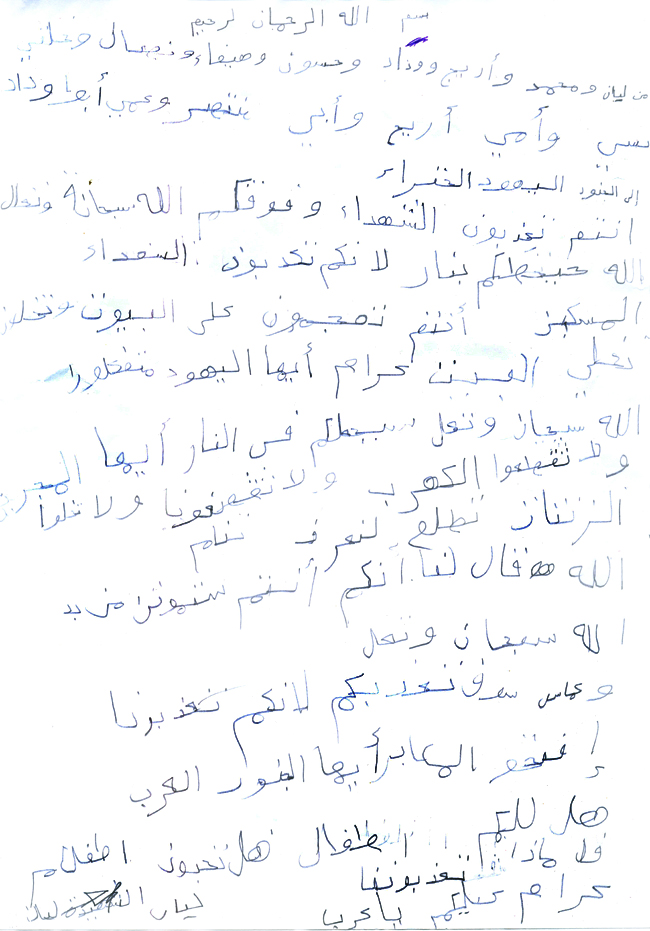 بسم الله الرحمان لرحيم
من ليان ومحمد وأريج ووداد وحسون وهيفاء ونضال وعلني
بسي وأمي أريج وأبي منتصر وعمي أبوا وداد
إلى الجنود اليهود الخنراء
انتم تعذبون الشهداء وفوقكم الله سبحانة وتعال
الله حيحطكم بنار لانكم تكذبون السعداء
المسكين أنتم تهجمون على البيوت وتخلو
تغلي البيت حرام أيها اليهود متفعلوا
الله سبحان وتعل سيحطكم في النار أيها
ولا تقطعوا الكهرب ولا تقصفونا ولا تخلوا
الزنانات تطلع لنعرف ننام
الله قال لنا أنكم أنتم ستموتن من يد
الله سبحان وتعل
وحماس سوف تعذبكم لانكم تعذبونا
إفتحو المعابر أيها الجنود العرب
هل لديكم اطفال هل تحبون اطفلكم
فل ماذا تعذبوننا
حرام عليكم يا عرب ليان الشهيدة ليان